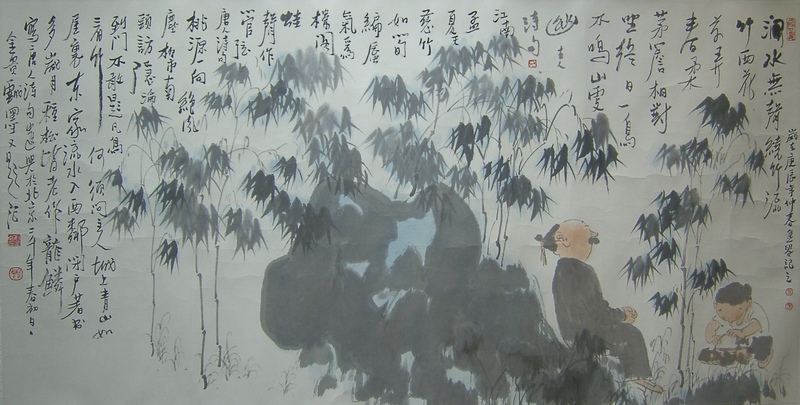 澗水無聲繞竹流
竹西花
草弄
春柔
茅簷相對
坐終日一鳥
不鳴山更
幽
詩句
江南
孟
夏天
慈竹
如筍
編蜃
氣為
樓閣
蛙
聲作
管弦
唐詩句
桃源一向絕風
塵柳市南
頭訪隱淪
到門不敢題凡鳥
看竹何須問主人城上青山如
屋裏東家流水入西鄰閉戶著書
多歲月種松皆老作龍鱗
寫唐人詩句於北京二千年春初日
又題
歲在庚辰年仲春記之